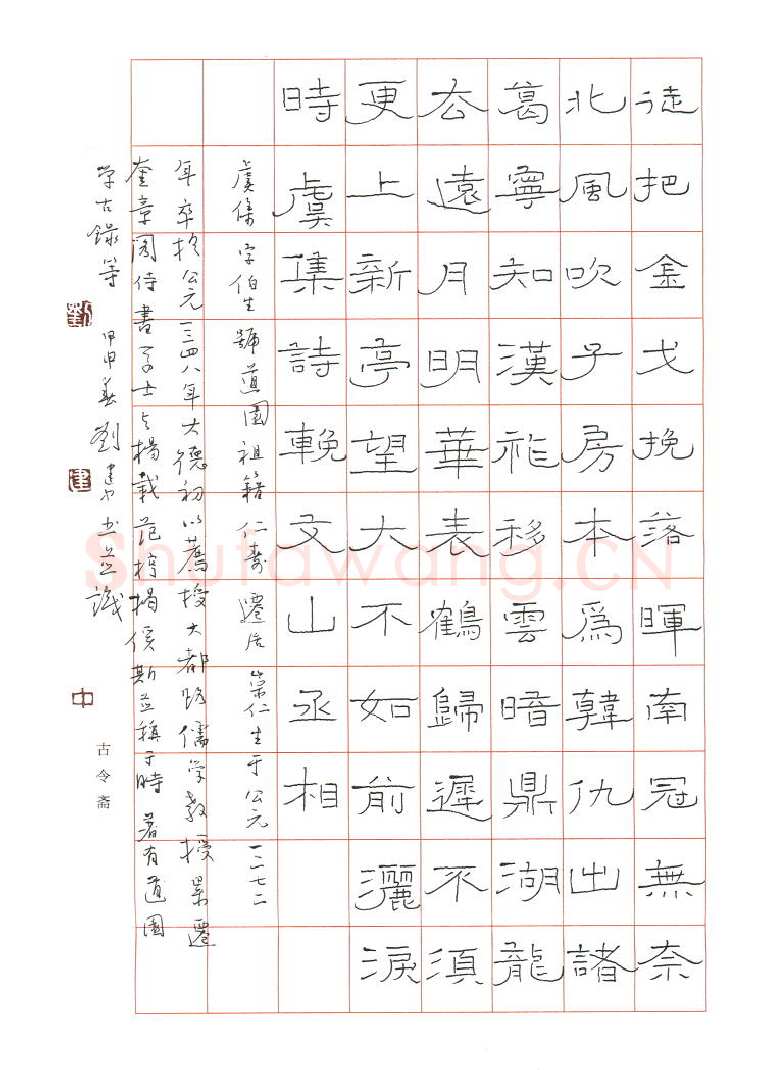 徒把金戈挽落暉南冠無奈
北風吹子房本爲韓仇出諸
葛寧知漢祚移雲暗鼎湖龍
去遠月明華表鶴歸遲不須
更上新亭望大不如前灑淚
時虞集詩輓文山丞相
虞集字伯生號道園祖籍仁壽遷居崇仁生于公元一二七二
年卒扵公元一三四八年大德初以薦授大都路儒学教授累遷
奎章閣侍書学士与楊載范梈揭傒斯並稱于時著有道園
学古錄等 甲申春劉建書並識
劉
建
中
古令斋
Shufawang.CN